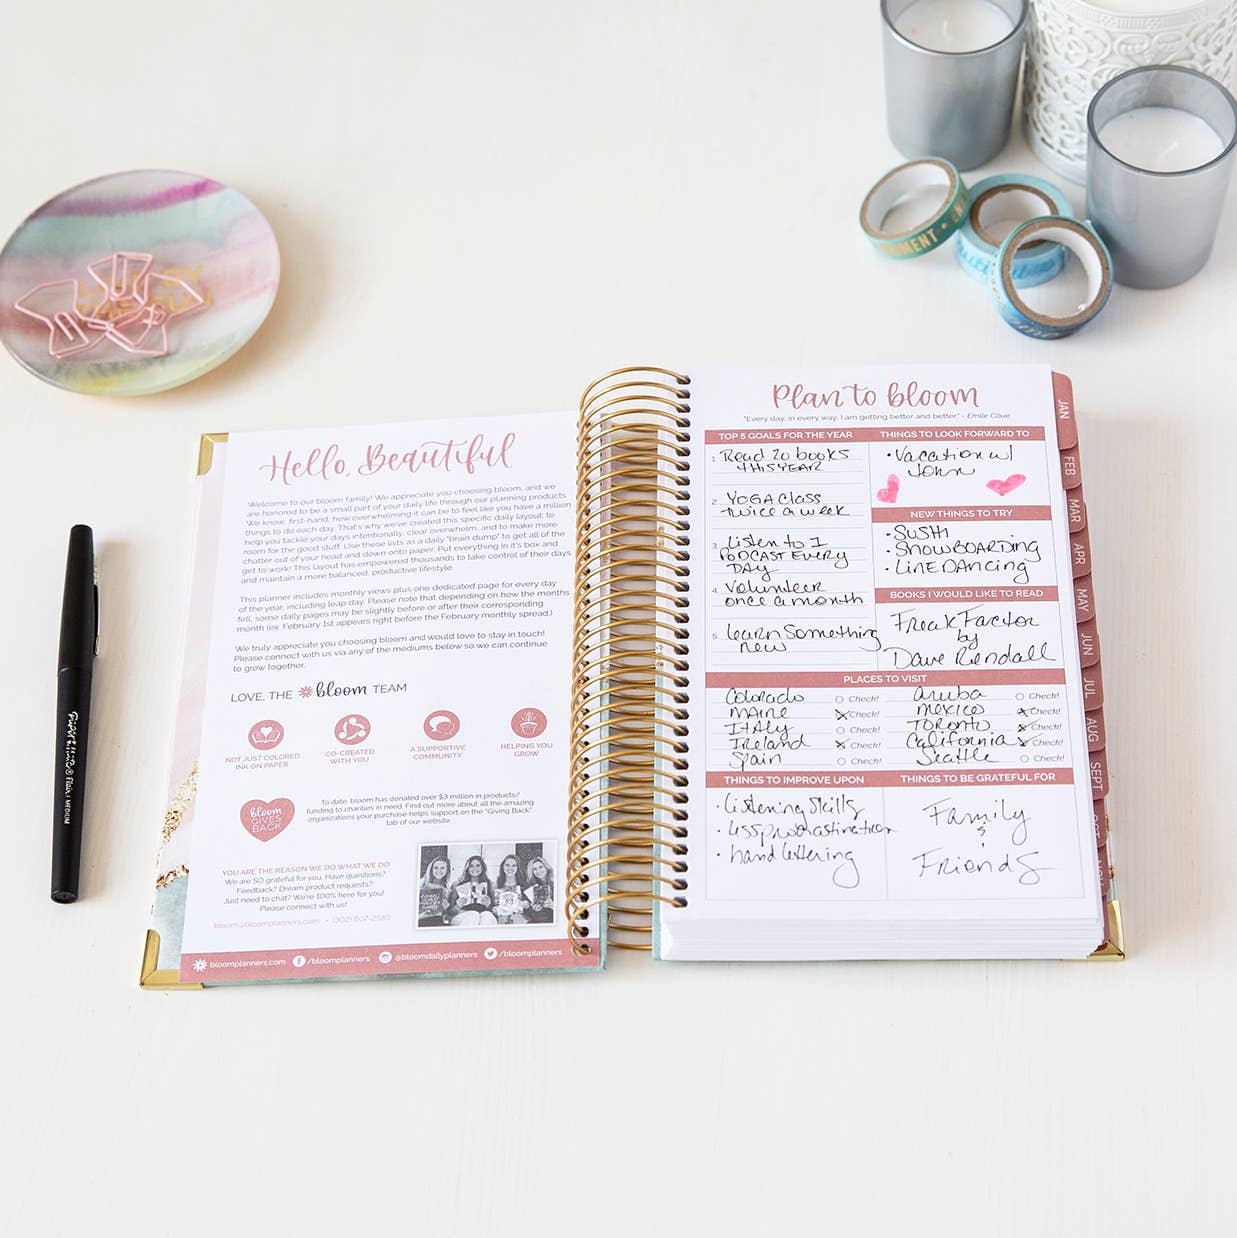 LET BY
THE FUN
MENT
Hello, Beautiful
Welcome to our bloom family! We appreciate you choosing bloom, and we
are honored to be a small part of your daily life through our planning products.
We know, first-hand, how overwhelming it can be to feel like you have a million
things to do each day. That's why we've created this specific daily layout; to
help you tackle your days intentionally, clear overwhelm, and to make more
room for the good stuff. Use these lists as a daily "brain dump" to get all of the
chatter out of your head and down onto paper. Put everything in it's box and
get to work! This layout has empowered thousands to take control of their days
and maintain a more balanced, productive lifestyle.
This planner includes monthly views plus one dedicated page for every day
of the year, including leap day. Please note that depending on how the months
fell, some daily pages may be slightly before or after their corresponding
month (ex: February 1st appears right before the February monthly spread.)
We truly appreciate you choosing bloom and would love to stay in touch!
Please connect with us via any of the mediums below so we can continue
to grow together.
LOVE, THE bloom TEAM
NOT JUST COLORED
INK ON PAPER
CO-CREATED
WITH YOU
A SUPPORTIVE
COMMUNITY
HELPING YOU
GROW
bloom
GIVES
BACK
To date, bloom has donated over $3 million in products/
funding to charities in need. Find out more about all the amazing
organizations your purchase helps support on the "Giving Back"
tab of our website.
YOU ARE THE REASON WE DO WHAT WE DO
We are SO grateful for you. Have questions?
Feedback? Dream product requests?
Just need to chat? We're 100% here for you!
Please connect with us!
bloom@bloomplanners.com • (302) 607-2580
bloomplanners.com /bloomplanners @bloomdailyplanners /bloomplanners
Plan to bloom
"Every day, in every way, I am getting better and better" - Emile Coue
TOP 5 GOALS FOR THE YEAR
1. Read 20 books
THIS YEAR
2. YOGA Class
twice a week
3. Listen to 1
PODCAST EVERY
DAY
4. Volunteer
once a month
5. Learn Something
new
THINGS TO LOOK FORWARD TO
• Vacation w/
John
NEW THINGS TO TRY
• SUSHI
• SNOWBOARDING
• LINE DANCING
BOOKS I WOULD LIKE TO READ
Freak Factor
by
Dave Rendall
PLACES TO VISIT
Colorado Check! Aruba Check!
MAINE Check! Mexico Check!
ITALY Check! TORONTO Check!
Ireland Check! California Check!
Spain Check! Seattle Check!
THINGS TO IMPROVE UPON
• Listening skills
• less procrastination
• hand lettering
THINGS TO BE GRATEFUL FOR
Family
&
Friends
JAN
FEB
MAR
APR
MAY
JUN
JUL
AUG
SEPT
OCT
NOV